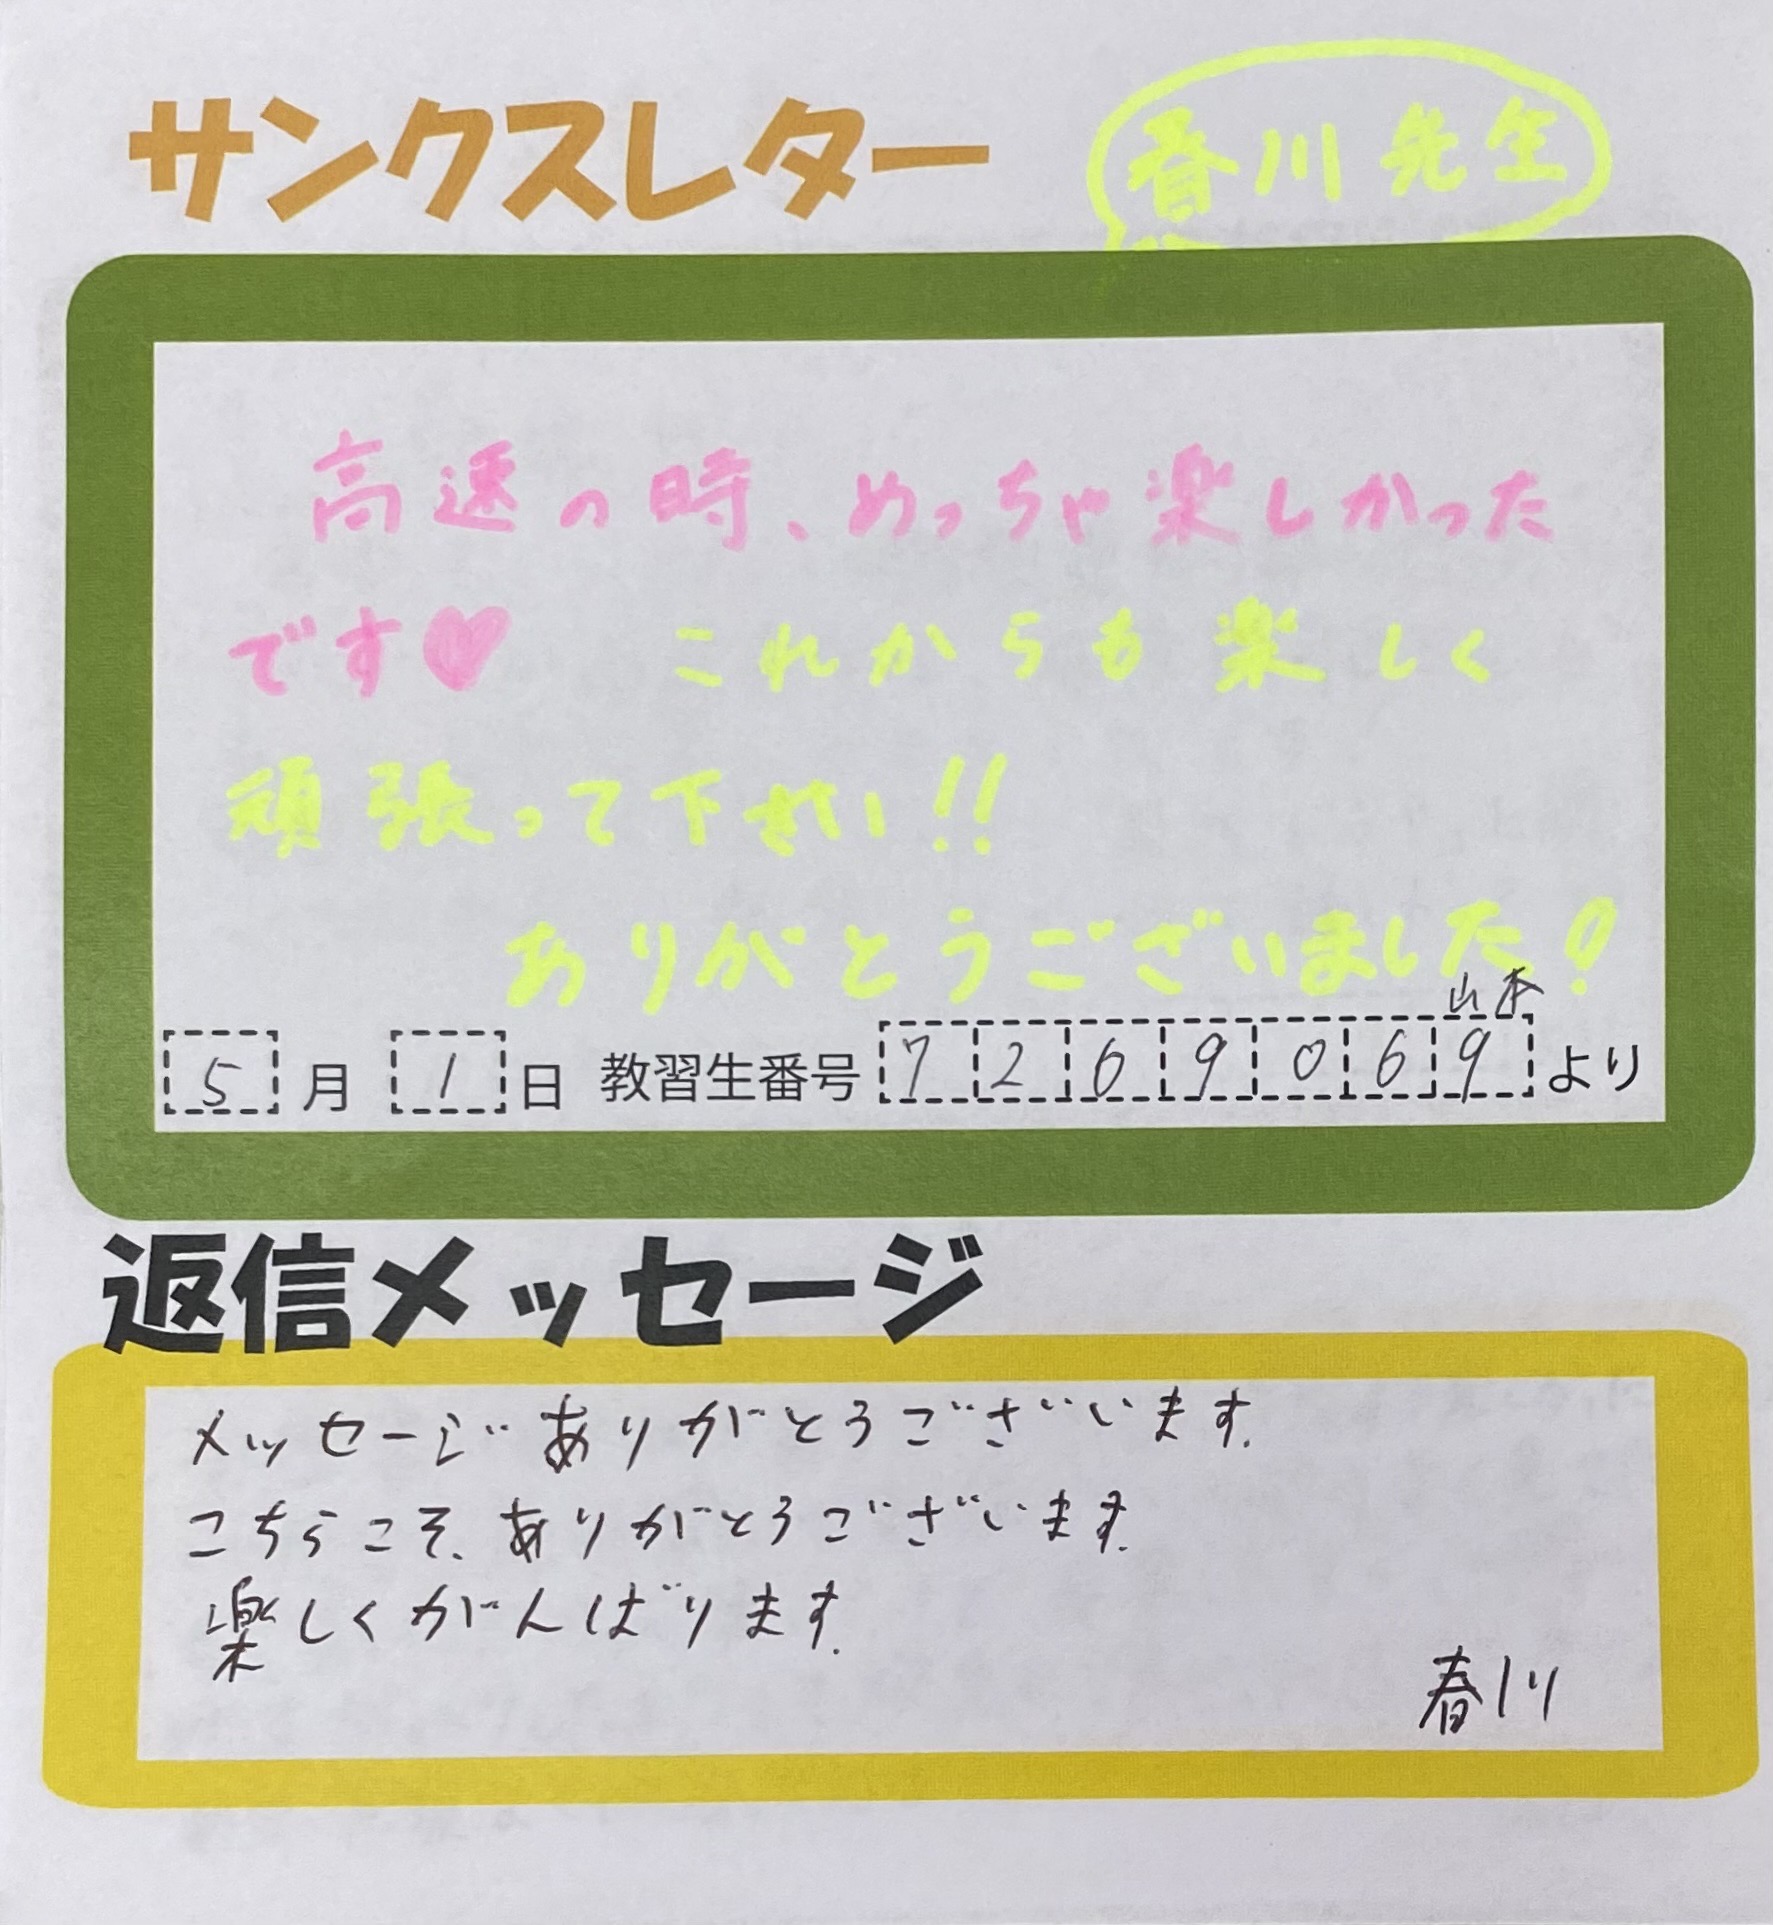 サンクスレター
春川先生
高速の時、めっちゃ楽しかった
です♥ これからも楽しく
頑張って下さい!!
ありがとうございました!
山本
5月1日 教習生番号7269069より
返信メッセージ
メッセージありがとうございます。
こちらこそ、ありがとうございます。
楽しくがんばります。
春川